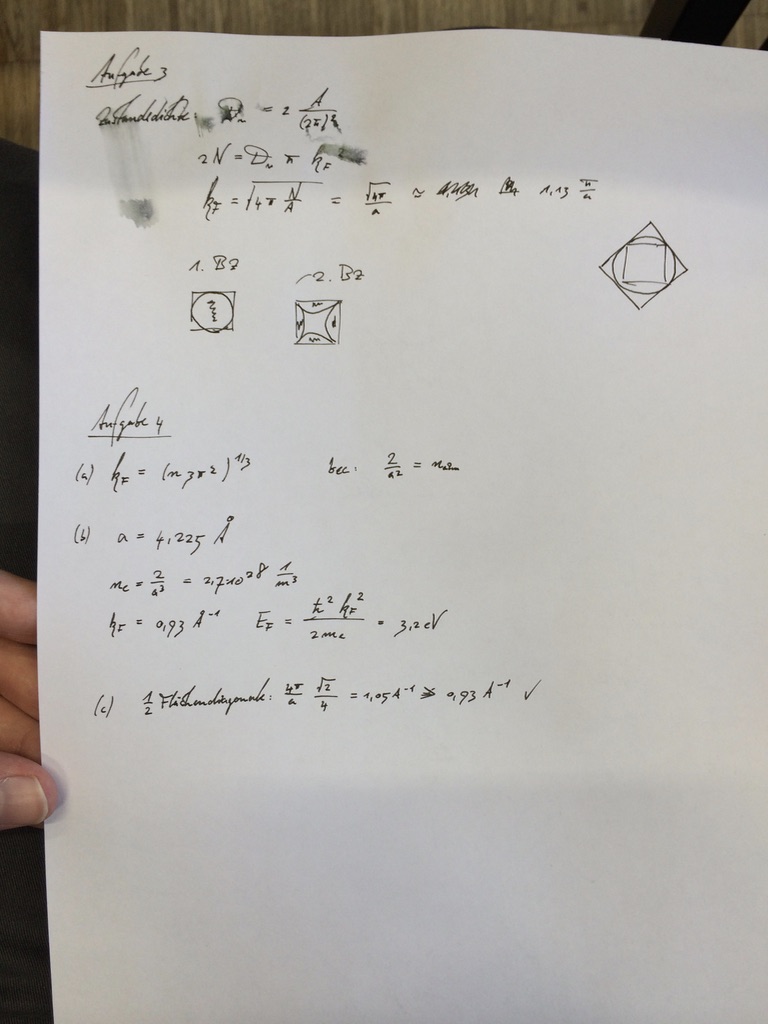 Aufgabe 3
Zustandsdichte: D = 2 A/(2π)²
2N = D π k_F²
k_F = √(4π N/A) = √4π/a ≃ 1,13 π/a
1. BZ
2. BZ
Aufgabe 4
(a) k_F = (n 3π²)^1/3 bcc: 2/a² =
(b) a = 4,225 Å
n_e = 2/a³ = 2,7·10²⁸ 1/m³
k_F = 0,93 Å⁻¹ E_F = ħ² k_F²/2m_e = 3,2 eV
(c) 1/2 Flächendiagonale: 4π/a √2/4 = 1,05 Å⁻¹ > 0,93 Å⁻¹ ✓